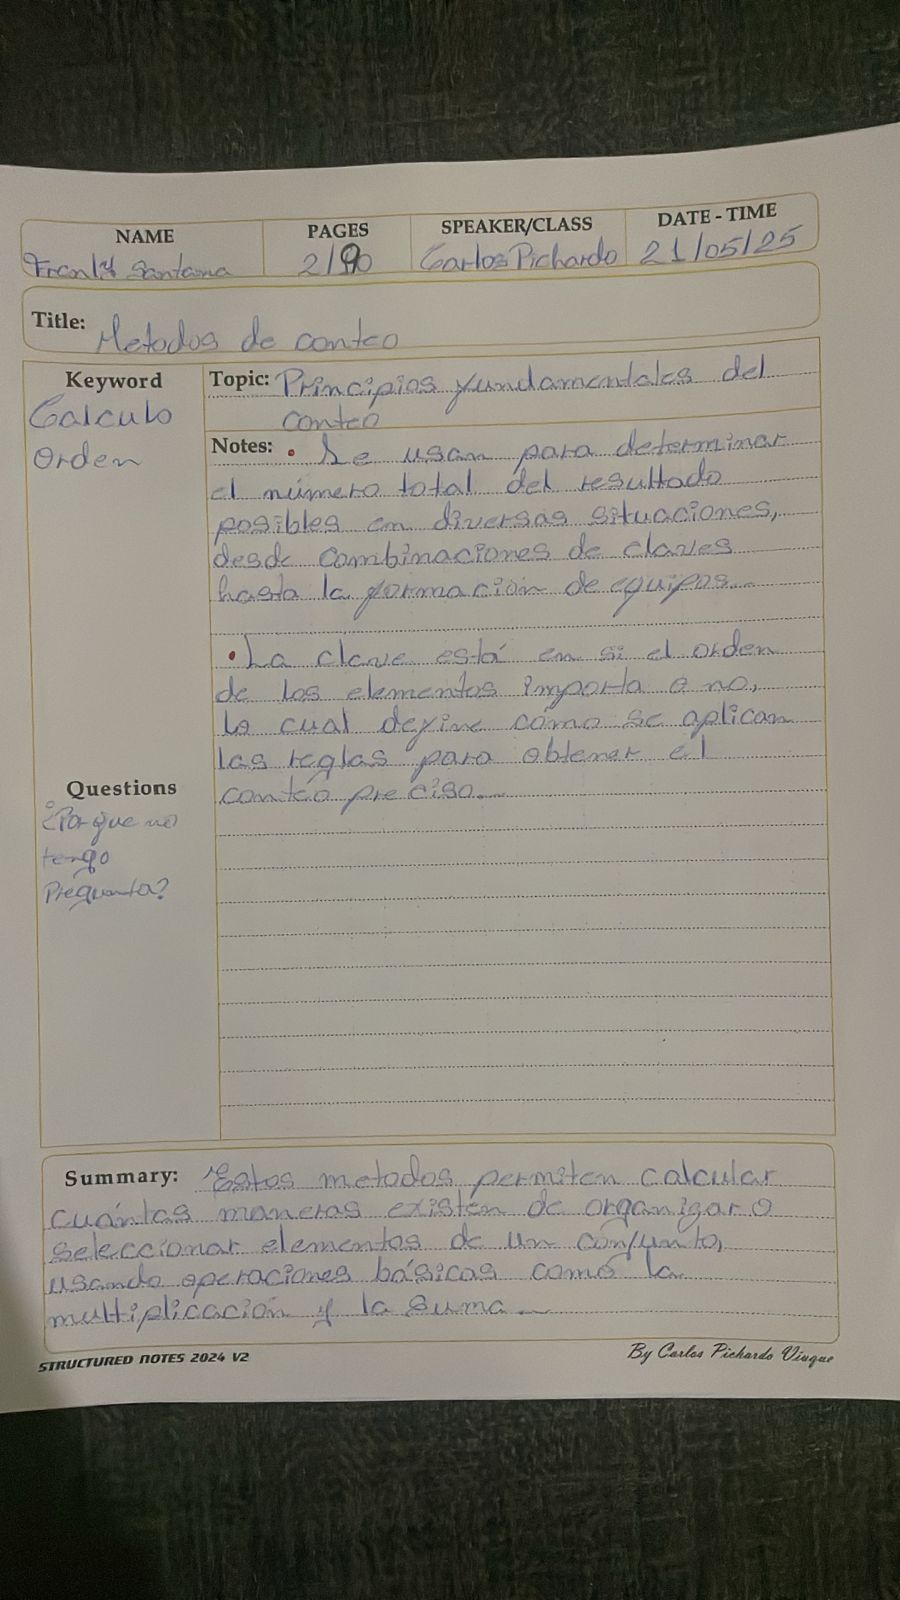 NAME PAGES SPEAKER/CLASS DATE - TIME
Santana 2/ Carlos Pichardo 21/05/25
Title: Metodos de conteo
Keyword
Calculo
Orden
Topic: Principios fundamentales del
conteo
Notes: • Se usan para determinar
el número total del resultado
posibles en diversas situaciones,
desde combinaciones de claves
hasta la formación de equipos...
• La clave está en si el orden
de los elementos importa o no,
lo cual define cómo se aplican
las reglas para obtener el
conteo preciso...
Questions
¿Por que no
tengo
Pregunta?
Summary: Estos metodos permiten calcular
cuántas maneras existen de organizar o
seleccionar elementos de un conjunto,
usando operaciones básicas como la
multiplicación y la suma...
STRUCTURED NOTES 2024 V2
By Carlos Pichardo Viuque